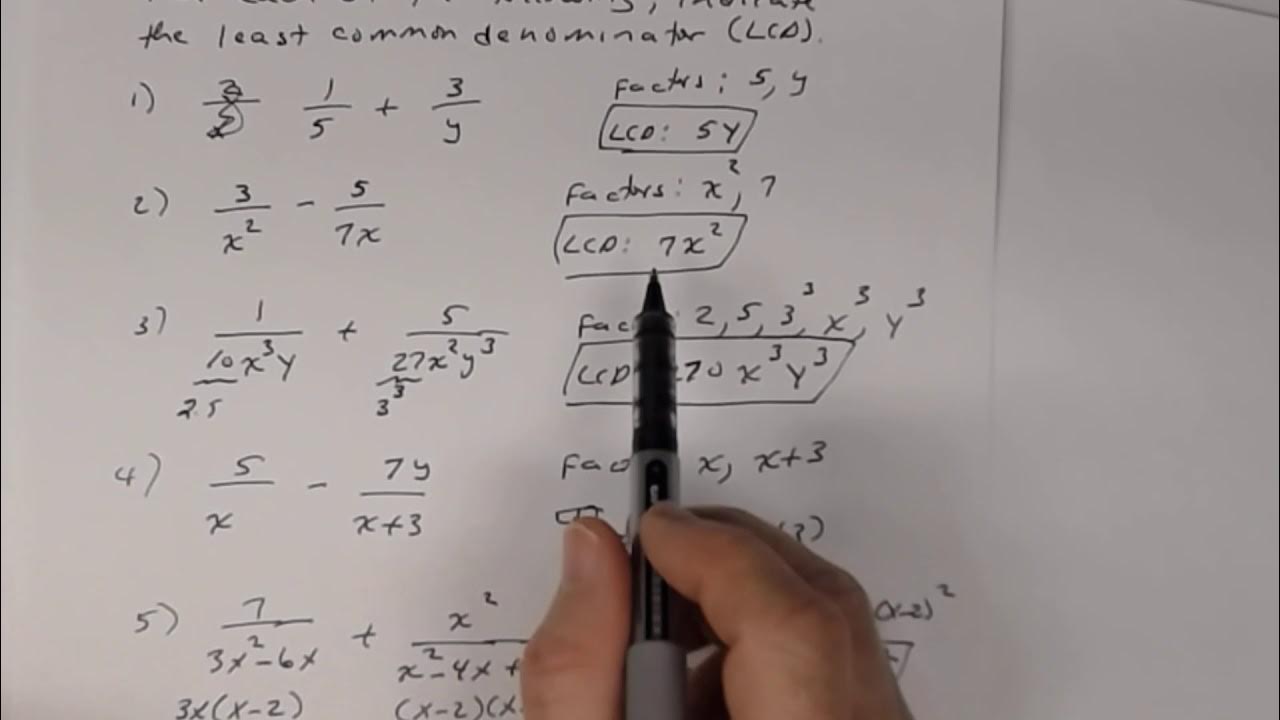 the least common denominator (LCD).
1) 1/5 + 3/y
Factors: 5, y
LCD: 5y
2) 3/x² - 5/7x
Factors: x², 7
LCD: 7x²
3) 1/10x³y + 5/27x²y³
2·5 3³
2, 5, 3³, x³, y³
LCD 270 x³y³
4) 5/x - 7y/x+3
x, x+3
5) 7/3x²-6x + x²/x²-4x+
(x-2)²
3x(x-2) (x-2)(x